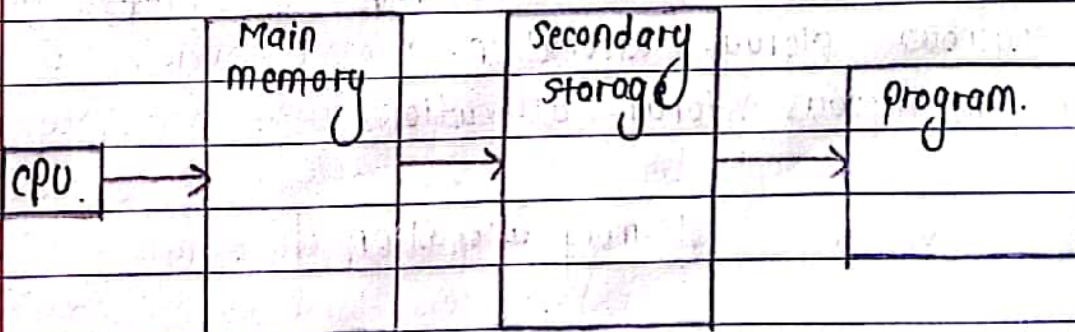 Main
memory
secondary
storage
program.
CPU.